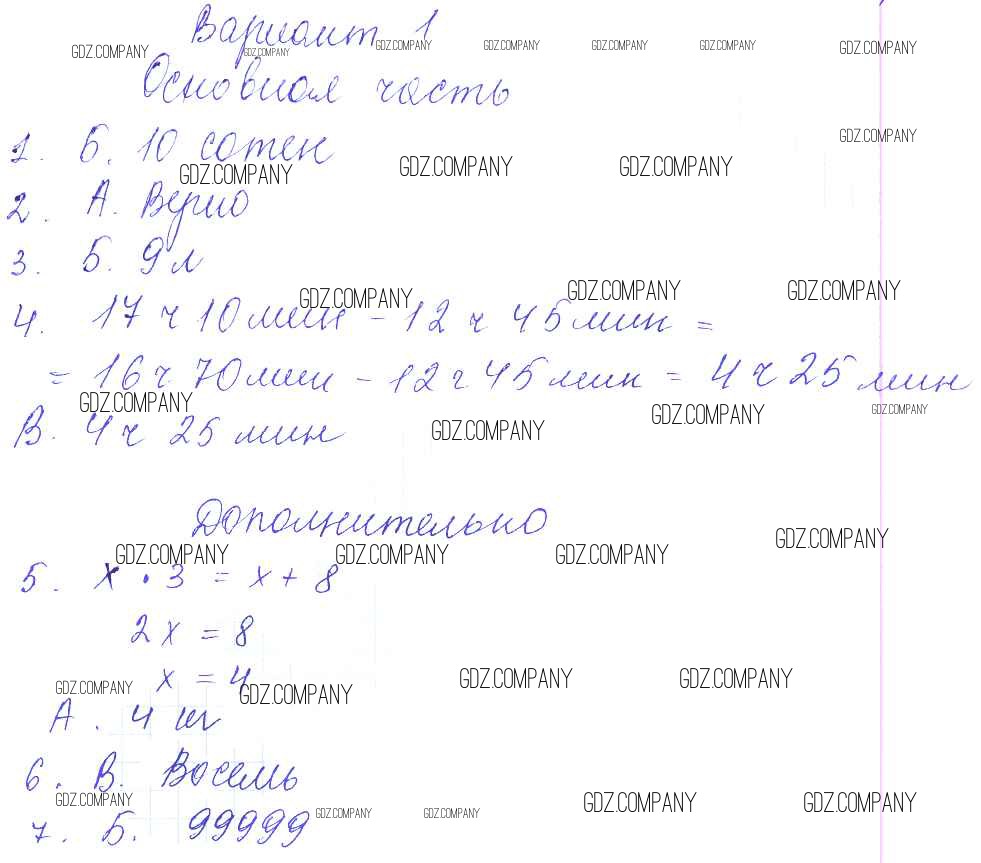 Вариант 1
GDZ.COMPANY GDZ.COMPANY GDZ.COMPANY GDZ.COMPANY GDZ.COMPANY GDZ.COMPANY GDZ.COMPANY
Основная часть
GDZ.COMPANY
1. Б. 10 сотен
GDZ.COMPANY GDZ.COMPANY GDZ.COMPANY
2. А. Верно
3. Б. 9 л
GDZ.COMPANY GDZ.COMPANY GDZ.COMPANY
4. 17 ч 10 мин - 12 ч 45 мин =
= 16 ч 70 мин - 12 ч 45 мин = 4 ч 25 мин
GDZ.COMPANY GDZ.COMPANY GDZ.COMPANY GDZ.COMPANY
В. 4 ч 25 мин
Дополнительно
GDZ.COMPANY GDZ.COMPANY GDZ.COMPANY GDZ.COMPANY
5. х · 3 = х + 8
2х = 8
х = 4
GDZ.COMPANY GDZ.COMPANY GDZ.COMPANY GDZ.COMPANY
А. 4 кг
6. В. Восемь
GDZ.COMPANY GDZ.COMPANY GDZ.COMPANY GDZ.COMPANY GDZ.COMPANY
7. Б. 99999